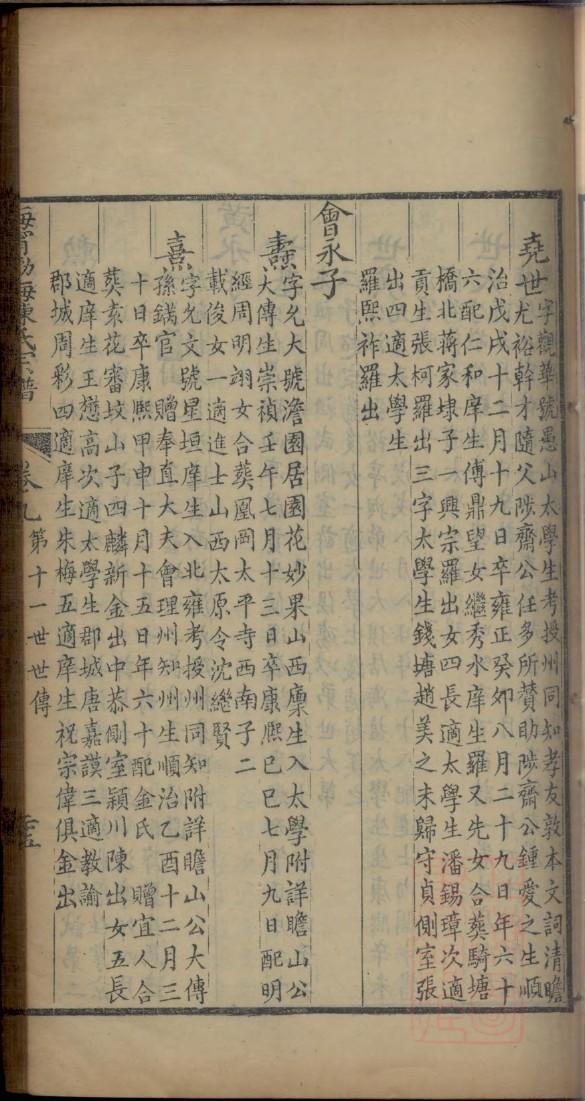 堯世字觀華號愚山太學生考授州同知孝友敦本文詞清贍
尤裕幹才隨父陟齋公任多所贊助陟齋公鍾愛之生順
治戊戌十二月十九日卒雍正癸卯八月二十九日年六十
六配仁和庠生傅鼎望女繼秀水庠生羅又先女合葬騎塘
橋北蔣家埭子一興宗羅出女四長適太學生潘錫璋次適
貢生張柯羅出三字太學生錢塘趙美之未歸守貞側室張
出四適太學生
羅熙祚羅出
會永子
燾字允大號澹園居園花妙果山西廩生入太學附詳瞻山公
大傳生崇禎壬午七月十三日卒康熙己巳七月九日配明
經周明翊女合葬凰岡太平寺西南子二
載俊女一適進士山西太原令沈繼賢
熹字允文號星垣庠生入北雍考授州同知附詳瞻山公大傳
孫鏋官 贈奉直大夫會理州知州生順治乙酉十二月三
十日卒康熙甲申十月十五日年六十配金氏 贈宜人合
葬袁花審坟山子四麟新金出中恭側室潁川陳出女五長
適庠生王懋高次適太學生郡城唐嘉謨三適教諭
郡城周彩四適庠生朱梅五適庠生祝宗偉俱金出
海寧渤海陳氏宗譜 卷九 第十一世世傳